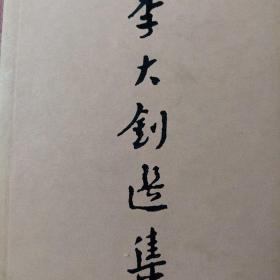 李大釗選集